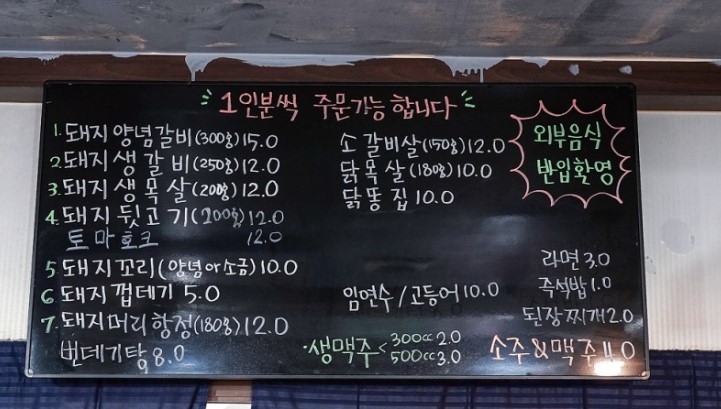 1인분씩 주문가능합니다
1. 돼지양념갈비(300g)15.0
2. 돼지생갈비(250g)12.0
3. 돼지생목살(200g)12.0
4. 돼지뒷고기(200g)12.0
토마호크 12.0
5. 돼지꼬리(양념or소금)10.0
6 돼지껍데기 5.0
7. 돼지머리항정(180g)12.0
번데기탕 8.0
소갈비살(150g)12.0
닭목살(180g)10.0
닭똥집 10.0
임연수/고등어 10.0
·생맥주< 300cc 2.0
500cc 3.0
외부음식
반입환영
라면 3.0
즉석밥 1.0
된장찌개 2.0
소주&맥주 4.0